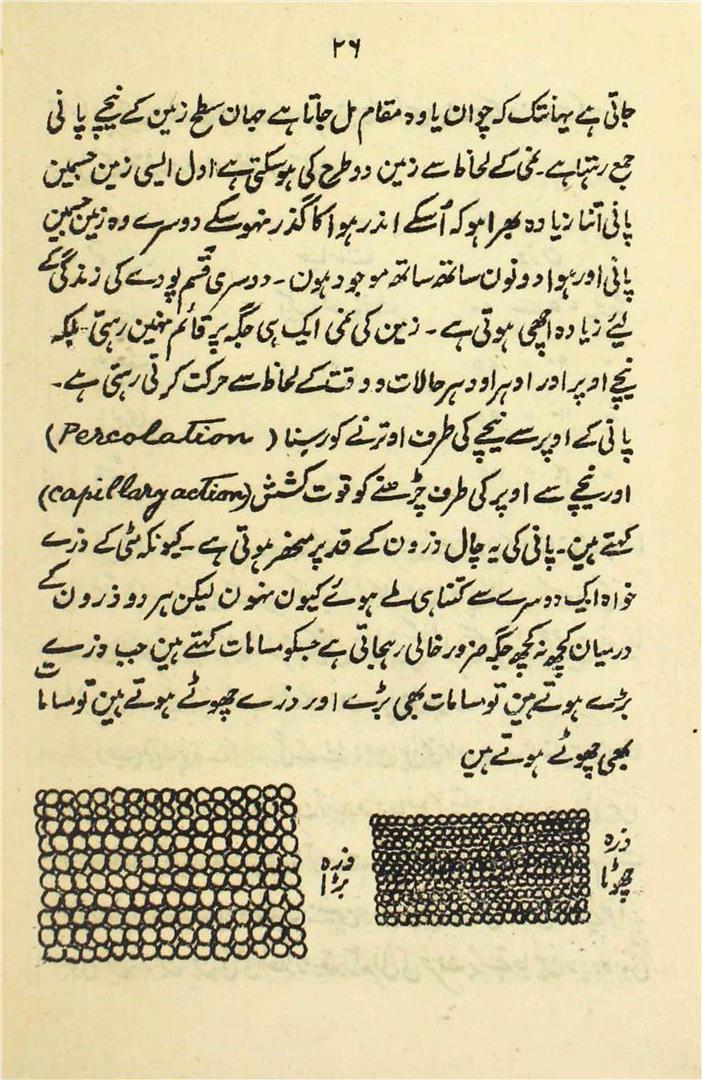 ۲۶
جاتی ہے یہانتک کہ چوان یا وہ مقام مل جاتا ہے جہان سطح زمین کے نیچے پانی
جمع رہتا ہے۔ نمی کے لحاظ سے زمین دو طرح کی ہو سکتی ہے اول ایسی زمین جسمین
پانی اتنا زیادہ بھرا ہو کہ اُسکے اندر ہوا کا گذر نہو سکے دوسرے وہ زمین جسمین
پانی اور ہوا دونون ساتھ ساتھ موجود ہون۔ دوسری قسم پودے کی زندگی کے
لیٔے زیادہ اچھی ہوتی ہے۔ زمین کی نمی ایک ہی جگہ پر قائم نہین رہتی۔ بلکہ
نیچے اوپر اور اوہر اودہر حالات و وقت کے لحاظ سے حرکت کرتی رہتی ہے۔
پانی کے اوپر سے نیچے کی طرف اوترنے کو رسنا (Percolation)
اور نیچے سے اوپر کی طرف چڑھنے کو قوت کشش (capillary action)
کہتے ہین۔ پانی کی یہ چال ذرون کے قد پر منحصر ہوتی ہے۔ کیونکہ مٹی کے ذرے
خواہ ایک دوسرے سے کتنا ہی ملے ہوئے کیون نہون لیکن ہر دو ذرون کے
درمیان کچھ نہ کچھ جگہ ضرور خالی رہجاتی ہے جسکو مسامات کہتے ہین جب ذرے
بڑے ہوتے ہین تو مسامات بھی بڑے اور ذرے چھوٹے ہوتے ہین تو مسامات
بھی چھوٹے ہوتے ہین
ذرہ
چھوٹا
ذرہ
بڑا